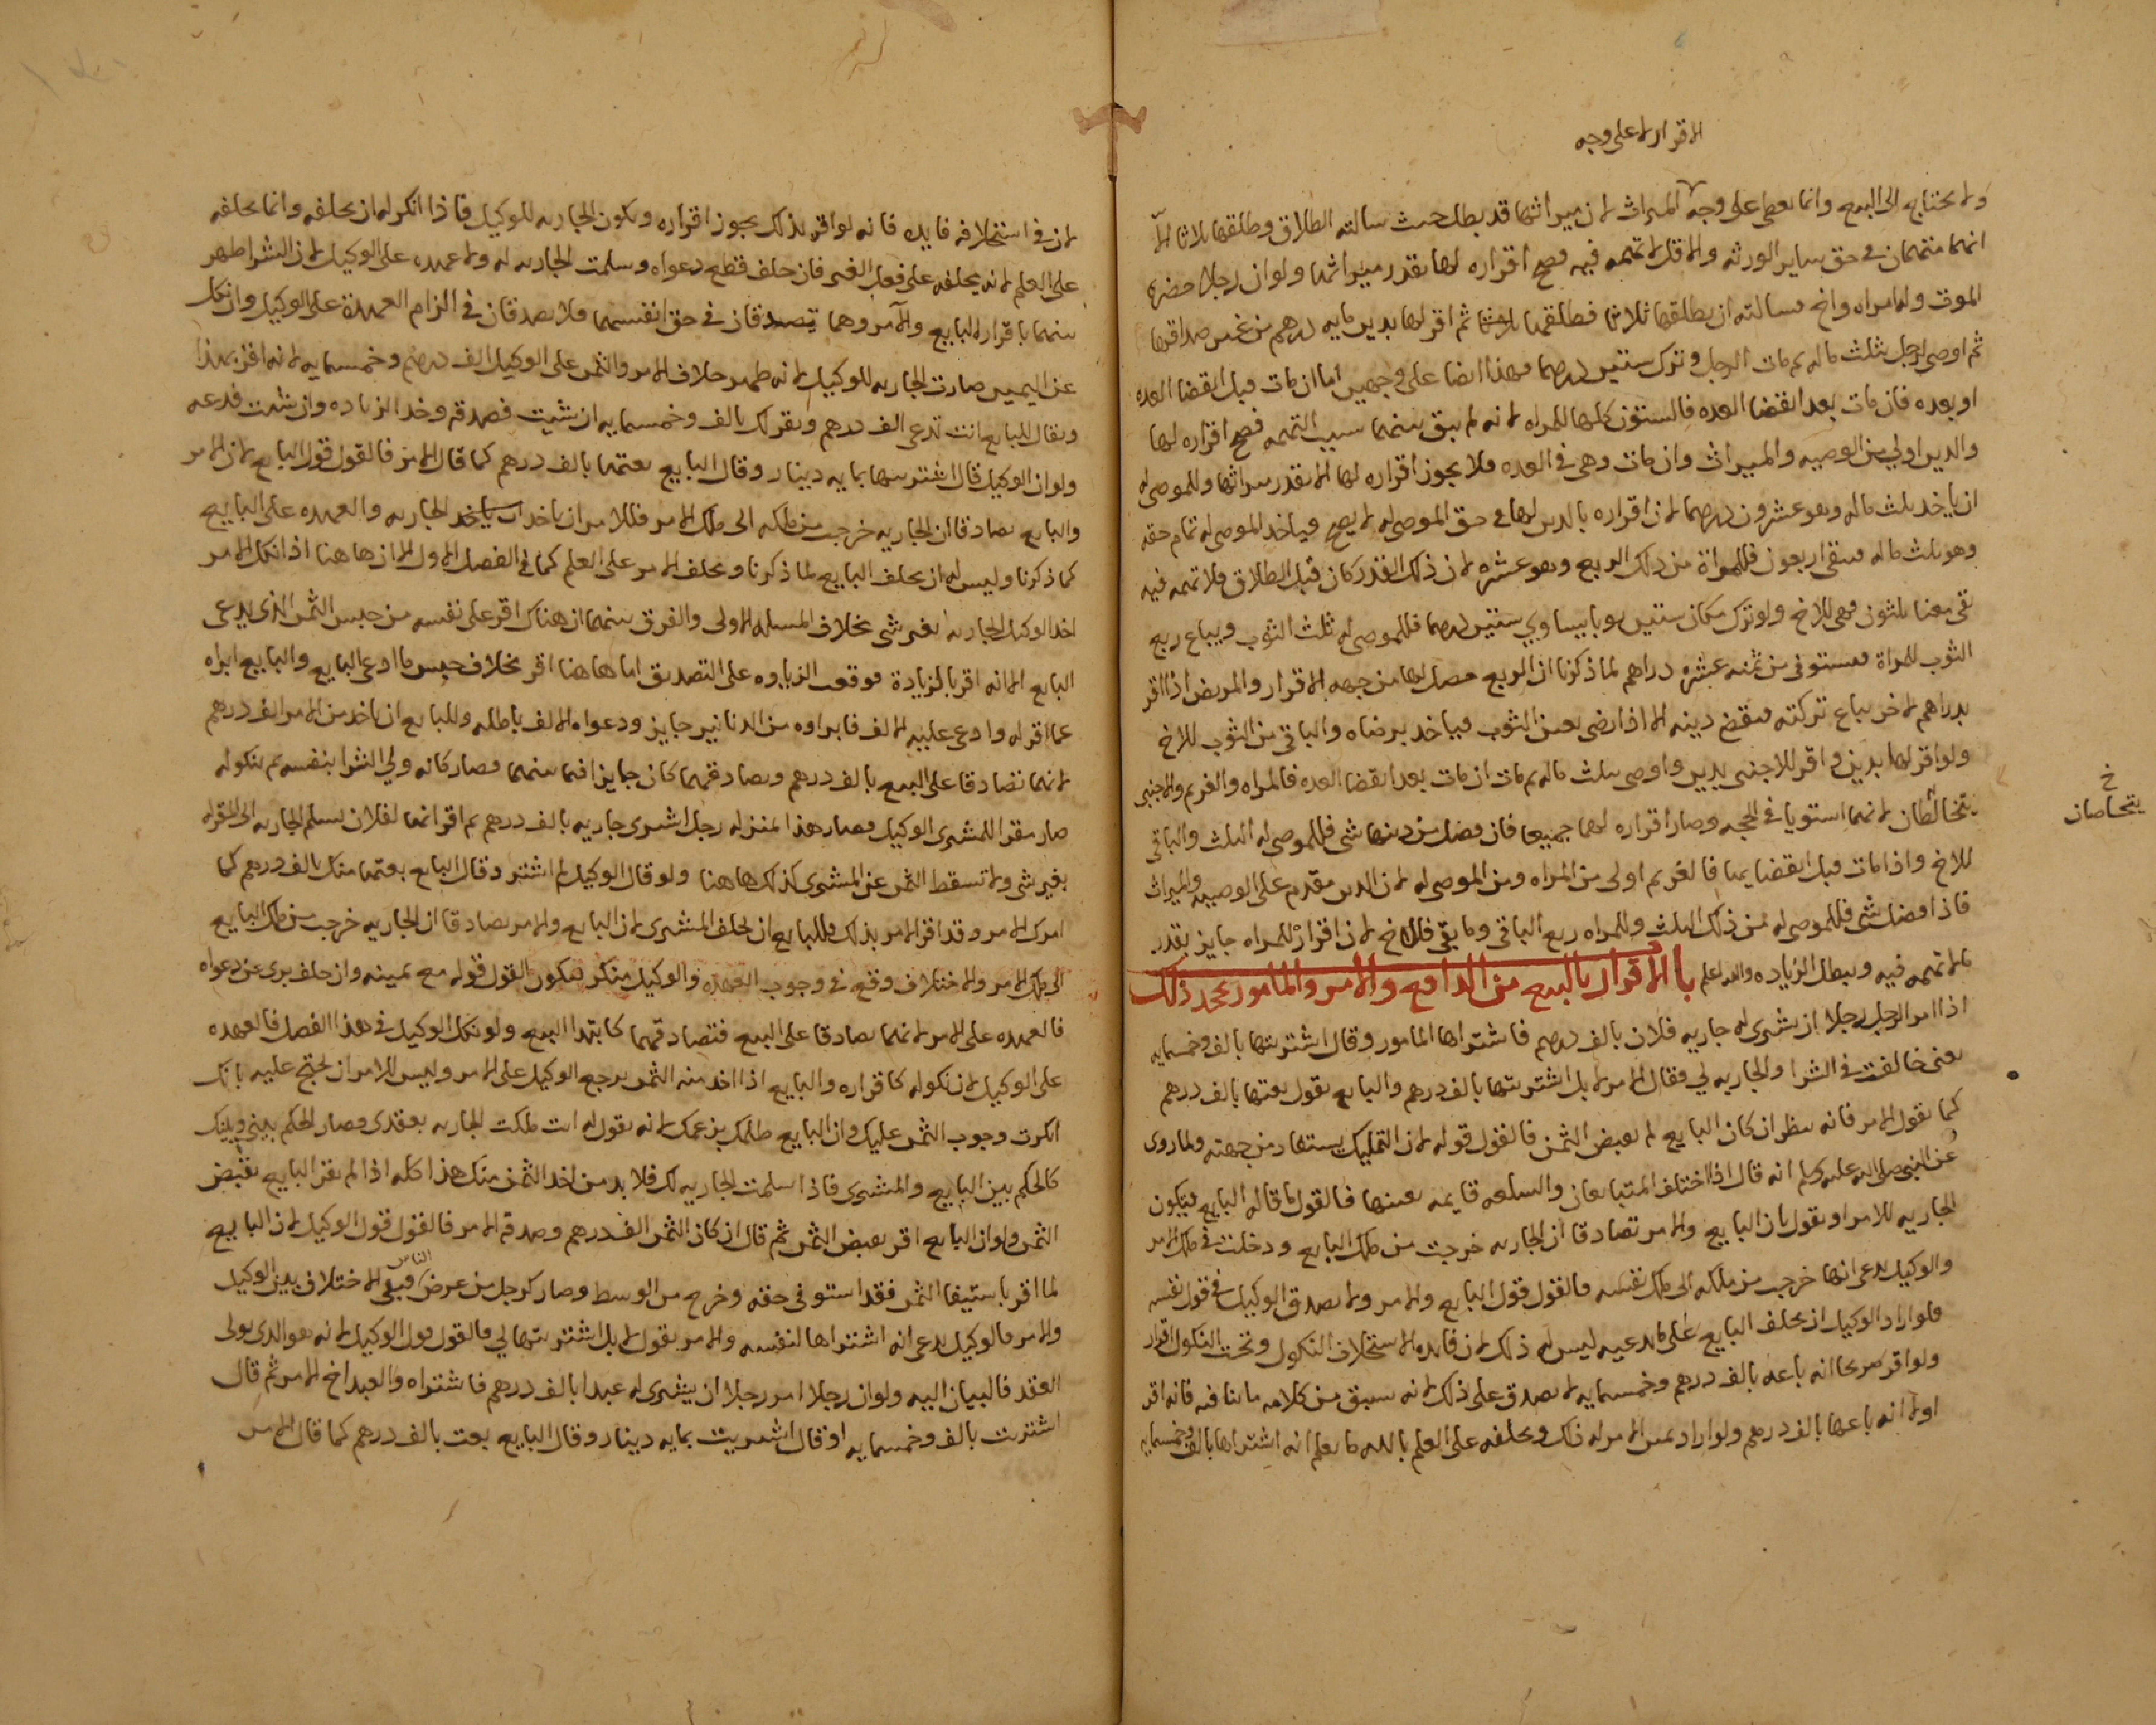 الاقرار لا على وجه
ولا يحتاج الى البيع وانما يعطى على وجه الميراث لان ميراثها قد بطل حيث سالته الطلاق وطلقها ثلاثا الا
انهما متهمان في حق ساير الورثه والاقل لا تهمه فيه فصح اقراره لها بقدر ميراثها ولو ان رجلا حضره
الموت وله امراه واخ فسالته ان يطلقها ثلاثا فطلقها ثلاثا ثم اقر لها بدين مايه درهم من غير صداقها
ثم اوصى لرجل بثلث ماله ثم مات الرجل وترك ستين درهما فهذا ايضا على وجهين اما ان مات قبل انقضا العده
او بعده فان مات بعد انقضا العده فالستون كلها للمراه لانه لم يبق بينهما سبب التهمه فصح اقراره لها
والدين اولى من الوصيه والميراث وان مات وهي في العده فلا يجوز اقراره لها الا بقدر ميراثها وللموصى له
ان ياخد ثلث ماله وهو عشرون درهما لان اقراره بالدين لها في حق الموصى له لا يصح فياخد الموصى له تمام حقه
وهو ثلث ماله فيبقى اربعون فللمراة من ذلك الربع وهو عشره لان ذلك القدر كان قبل الطلاق فلا تهمه فيه
بقي معنا ثلثون فهي للاخ ولو ترك مكان ستين ثوبا يساوي ستين درهما فللموصى له ثلث الثوب ويباع ربع
الثوب للمراة فيستوفى من ثمنه عشره دراهم لما ذكرنا ان الربع حصل لها من جهه الاقرار والمريض اذا اقر
بدراهم لاخر يباع تركته فيقضى دينه الا اذا رضي بعين الثوب فياخد برضاه والباقي من الثوب للاخ
ولو اقر لها بدين واقر للاجنبي بدين واوصى بثلث ماله ثم مات ان مات بعد انقضا العده فالمراه والغريم والاجنبي
يتخالطان لانهما استويا في الحجه وصار اقراره لهما جميعا فان فضل من دينهما شي فللموصى له الثلث والباقي
خ
يتحاصان
للاخ واذا مات قبل انقضايها فالغريم اولى من المراه ومن الموصى له لان الدين مقدم على الوصيه والميراث
فاذا فضل شي فللموصى له من ذلك الثلث وللمراه ربع الباقي وما بقي فللاخ لان اقراره للمراه جايز بقدر
ما لا تهمه فيه ويبطل الزياده والله اعلم باب الاقرار بالبيع من الدافع والامر والمامور يجحد ذلك
اذا امر الرجل رجلا ان يشتري له جاريه فلان بالف درهم فاشتراها المامور وقال اشتريتها بالف وخمسمايه
يعني خالفت في الشرا والجاريه لي فقال الامر لا بل اشتريتها بالف درهم والبايع يقول بعتها بالف درهم
كما يقول الامر فانه ينظر ان كان البايع لم يقبض الثمن فالقول قوله لان التمليك يستفاد من جهته ولما روى
عن النبي صلى الله عليه وسلم انه قال اذا اختلف المتبايعان والسلعه قايمه بعينها فالقول ما قاله البايع فيكون
الجاريه للامر او يقول بان البايع والامر تصادقا ان الجاريه خرجت من ملك البايع ودخلت في ملك الامر
والوكيل يدعي انها خرجت من ملكه الى ملك نفسه فالقول قول البايع والامر ولا يصدق الوكيل في قول نفسه
فلو اراد الوكيل ان يحلف البايع على ما يدعيه ليس له ذلك لان فايده الاستحلاف النكول وتحت النكول اقرار
ولو اقر صريحا انه باعه بالف درهم وخمسمايه لا يصدق على ذلك لانه سبق من كلامه ما ينافيه فانه اقر
اولا انه باعها بالف درهم ولو اراد يمين الامر له ذلك ويحلفه على العلم بالله ما يعلم انه اشتراها بالف وخمسمايه
لان في استحلافه فايده فانه لو اقر بذلك يجوز اقراره وتكون الجاريه للوكيل فاذا انكر له ان يحلفه وانما يحلفه
على العلم لانه يحلفه على فعل الغير فان حلف قطع دعواه وسلمت الجاريه له ولا عهده على الوكيل لان الشرا ظهر
بينهما باقرار البايع والآمر وهما يصدقان في حق انفسهما ولا يصدقان في الزام العهدة على الوكيل وان نكل
عن اليمين صارت الجاريه للوكيل لانه ظهر خلاف الامر والثمن على الوكيل الف درهم وخمسمايه لانه اقر بهذا
ويقال للبايع انت تدعي الف درهم ويقر لك بالف وخمسمايه ان شيت فصدقه وخد الزياده وان شيت فدعه
ولو ان الوكيل قال اشتريتها بمايه دينار وقال البايع بعتها بالف درهم كما قال الامر فالقول قول البايع لان الامر
والبايع تصادقا ان الجاريه خرجت من ملكه الى ملك الامر فللامر ان ياخد الجاريه والعهده على البايع
كما ذكرنا وليس له ان يحلف البايع لما ذكرنا ويحلف الامر على العلم كما في الفصل الاول الا ان هاهنا اذا نكل الامر
اخد الوكيل الجاريه بغير شي بخلاف المسله الاولى والفرق بينهما ان هناك اقر على نفسه من جنس الثمن الذي يدعي
البايع الا انه اقر بالزيادة فوقعت الزياده على التصديق اما هاهنا اقر بخلاف جنس ما ادعى البايع والبايع ابراه
عما اقر له وادعى عليه الالف فابراوه من الدنانير جايز ودعواه الالف باطله وللبايع ان ياخد من الامر الف درهم
لانهما تصادقا على البيع بالف درهم وتصادقهما كان جايزا فيما بينهما فصار كانه ولي الشرا بنفسه ثم بنكوله
صار مقرا للمشتري الوكيل فصار هذا بمنزله رجل اشترى جاريه بالف درهم ثم اقر انها لفلان يسلم الجاريه الى المقر له
بغير شي ولا تسقط الثمن عن المشتري كذلك هاهنا ولو قال الوكيل لم اشتر وقال البايع بعتها منك بالف درهم كما
امرك الامر وقد اقر الامر بذلك فللبايع ان يحلف المشتري لان البايع والامر تصادقا ان الجاريه خرجت من ملك البايع
الى ملك الامر والاختلاف وقع في وجوب العهده والوكيل منكر فيكون القول قوله مع يمينه وان حلف بري عن دعواه
فالعهده على الامر لانهما تصادقا على البيع فتصادقهما كابتدا البيع ولو نكل الوكيل في هذا الفصل فالعهده
على الوكيل لان نكوله كاقراره والبايع اذا اخد منه الثمن يرجع الوكيل على الامر وليس للامر ان يحتج عليه بانك
انكرت وجوب الثمن عليك وان البايع ظلمك بزعمك لانه يقول له انت ملكت الجاريه بعقدي وصار الحكم بيني وبينك
كالحكم بين البايع والمشتري فاذا سلمت الجاريه لك فلا بد من اخد الثمن منك هذا كله اذا لم يقر البايع بقبض
الثمن ولو ان البايع اقر بقبض الثمن ثم قال ان كان الثمن الف درهم وصدقه الامر فالقول قول الوكيل لان البايع
لما اقر باستيفا الثمن فقد استوفى حقه وخرج من الوسط وصار كرجل من عرض الناس فبقي الاختلاف بين الوكيل
والامر فالوكيل يدعي انه اشتراها لنفسه والامر يقول لا بل اشتريتها لي فالقول قول الوكيل لانه هو الذي تولى
العقد فالبيان اليه ولو ان رجلا امر رجلا ان يشتري له عبدا بالف درهم فاشتراه والعبد اخ الامر ثم قال
اشتريت بالف وخمسمايه او قال اشتريت بمايه دينار وقال البايع بعت بالف درهم كما قال الامر